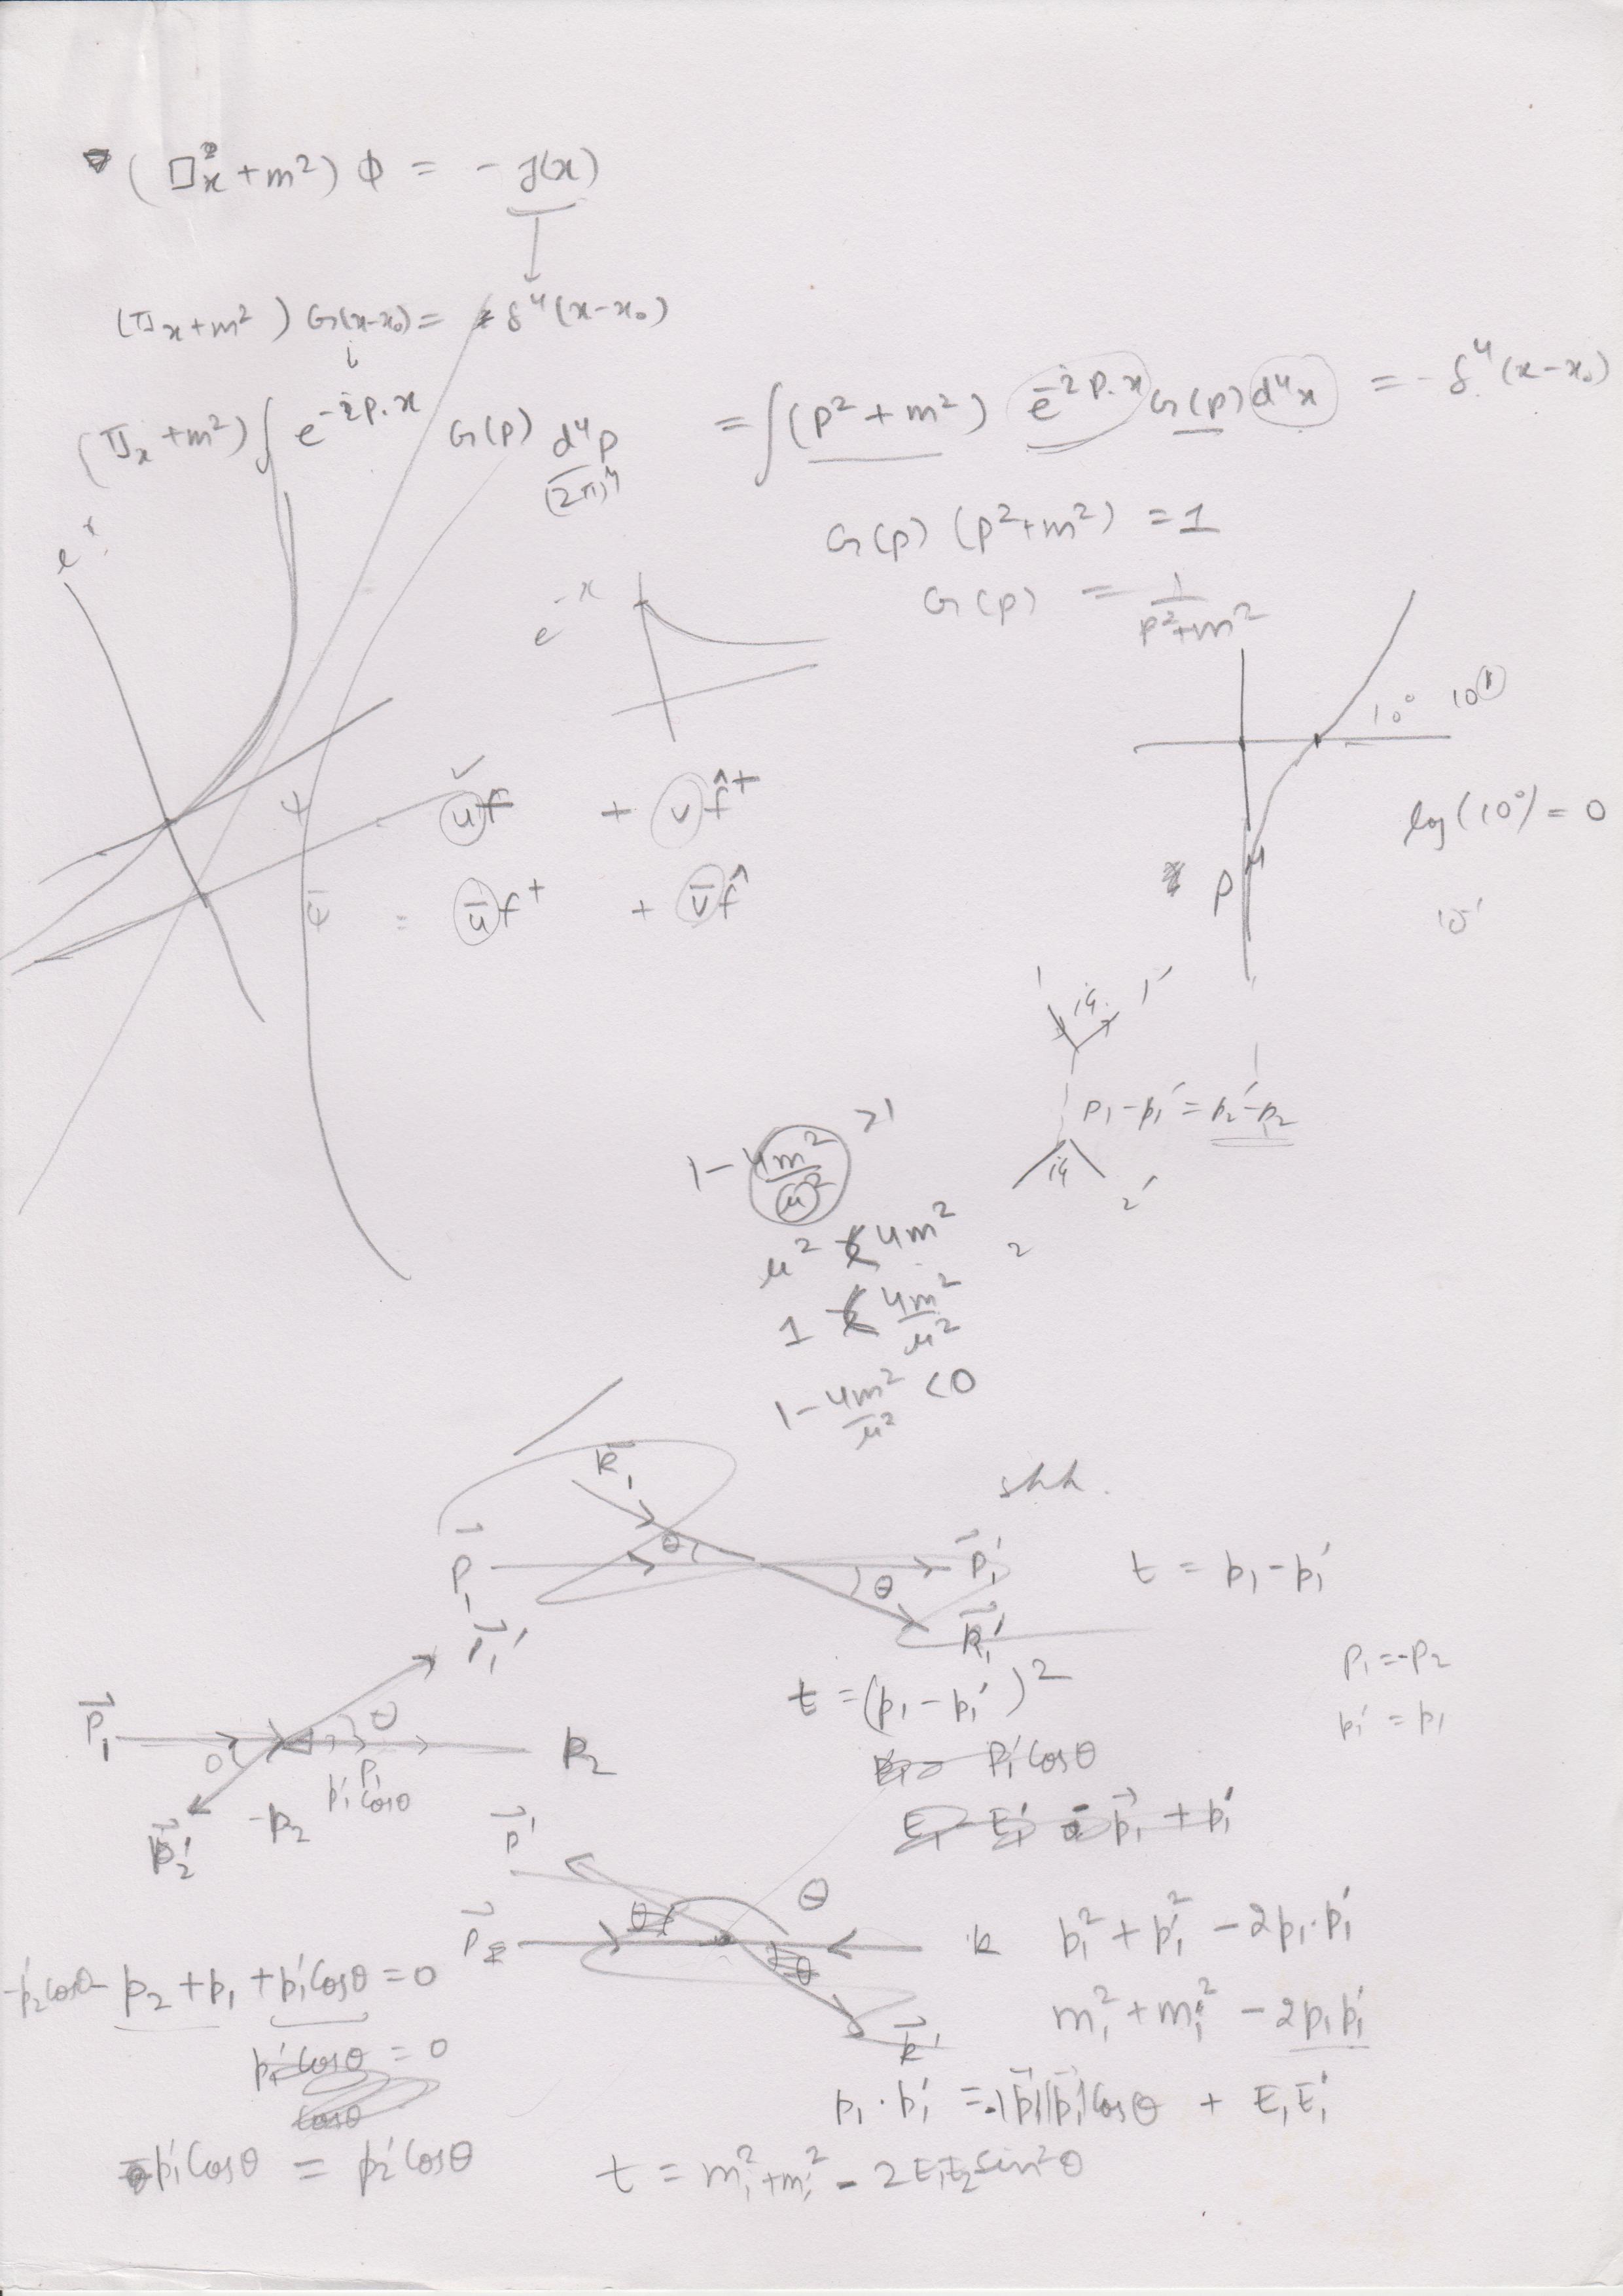 ( □²ₓ + m²) ϕ = - J(x)
(□ₓ + m²) G(x-x₀) = δ⁴(x-x₀)
(□ₓ + m²) ∫ e^{-ip.x} G(p) d⁴p/(2π)⁴ = ∫(p² + m²) e^{-ip.x} G(p) d⁴x = - δ⁴(x-x₀)
G(p) (p²+m²) = 1
G(p) = 1/(p²+m²)
eˣ
e^{-x}
10⁰ 10¹
log(10⁰) = 0
ψ u f + v f̂⁺
ψ̄ = ū f⁺ + v̄ f̂
p
1 ig 1′
p₁-p₁′ = p₂′-p₂
ig
2′
2
1 - 4m²/μ² >1
μ² < 4m²
1 < 4m²/μ²
1 - 4m²/μ² <0
k⃗₁
p⃗₁ θ θ p⃗₁′
k⃗₁′
t = p₁ - p₁′
p⃗₁′
p⃗₁ θ θ p₂
p₁
p₁′ cosθ
-p₂
p⃗₂′
t = (p₁ - p₁′)²
p₁ = -p₂
p₁′ = p₁
p₁′ cosθ
E₁ E₁′ p⃗₁ + p₁′
p⃗′
θ
p⃗ θ θ k
k⃗′
p₁² + p₁′² - 2p₁.p₁′
m₁² + m₁′² - 2p₁p₁′
-p₂′cosθ - p₂ + p₁ + p₁′cosθ = 0
p₁′ cosθ = 0
cosθ
p₁ . p₁′ = -|p⃗₁||p⃗₁′|cosθ + E₁E₁′
p₁′ cosθ = p₂′ cosθ
t = m₁² + m₁′² - 2E₁E₂ sin²θ